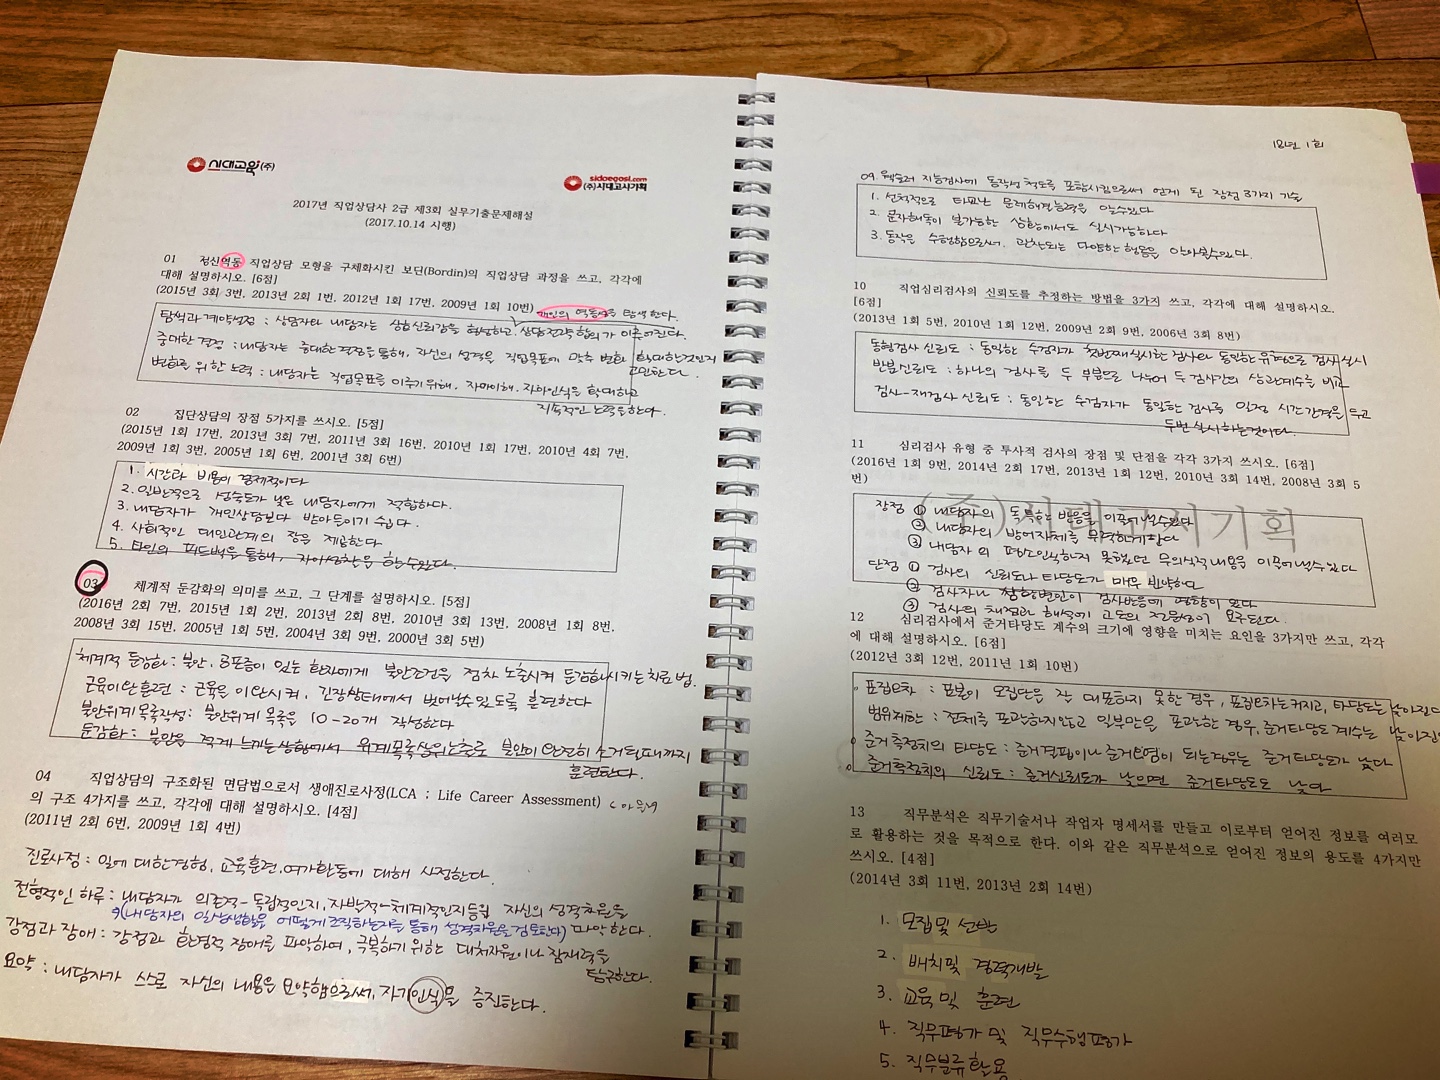 시대교육(주)
sidaegosi.com
(주)시대고시기획
2017년 직업상담사 2급 제3회 실무기출문제해설
(2017.10.14 시행)
01 정신역동 직업상담 모형을 구체화시킨 보딘(Bordin)의 직업상담 과정을 쓰고, 각각에
대해 설명하시오. [6점]
(2015년 3회 3번, 2013년 2회 1번, 2012년 1회 17번, 2009년 1회 10번)
개인의 역동성을 탐색한다.
탐색과 계약설정 : 상담자와 내담자는 상호신뢰감을 형성하고, 상담전략 합의가 이루어진다.
중대한 결정 : 내담자는 중대한 결정을 통해, 자신의 성격을 직업목표에 맞춰 변화 확대할것인지
고민한다.
변화를 위한 노력 : 내담자는 직업목표를 이루기위해, 자아이해, 자아인식을 확대하고
지속적인 노력을한다.
02 집단상담의 장점 5가지를 쓰시오. [5점]
(2015년 1회 17번, 2013년 3회 7번, 2011년 3회 16번, 2010년 1회 17번, 2010년 4회 7번,
2009년 1회 3번, 2005년 1회 6번, 2001년 3회 6번)
1. 시간과 비용이 경제적이다
2. 일반적으로 성숙도가 낮은 내담자에게 적합하다.
3. 내담자가 개인상담보다 받아들이기 쉽다.
4. 사회적인 대인관계의 장을 제공한다
5. 타인의 피드백을 통해, 자아성찰을 할수있다.
03 체계적 둔감화의 의미를 쓰고, 그 단계를 설명하시오. [5점]
(2016년 2회 7번, 2015년 1회 2번, 2013년 2회 8번, 2010년 3회 13번, 2008년 1회 8번,
2008년 3회 15번, 2005년 1회 5번, 2004년 3회 9번, 2000년 3회 5번)
체계적 둔감화 : 불안, 공포증이 있는 환자에게 불안조건을 점차 노출시켜 둔감화시키는 치료법.
근육이완훈련 : 근육을 이완시켜, 긴장상태에서 벗어날수있도록 훈련한다
불안위계목록작성 : 불안위계 목록을 10-20개 작성한다
둔감화 : 불안을 적게 느끼는상황에서 위계목록상위노출로 불안이 완전히 소거될때까지
훈련한다.
04 직업상담의 구조화된 면담법으로서 생애진로사정(LCA ; Life Career Assessment)
의 구조 4가지를 쓰고, 각각에 대해 설명하시오. [4점]
(2011년 2회 6번, 2009년 1회 4번)
진로사정 : 일에 대한경험, 교육훈련, 여가활동에 대해 사정한다.
전형적인 하루 : 내담자가 의존적-독립적인지, 자발적-체계적인지등의 자신의 성격차원을
(내담자의 일상생활을 어떻게 조직하는지를 통해 성격차원을 검토한다) 파악한다.
강점과 장애 : 강점과 환경적 장애를 파악하여, 극복하기 위한 대처자원이나 잠재력을
탐구한다.
요약 : 내담자가 스스로 자신의 내용을 요약함으로써, 자기인식을 증진한다.
18년 1회
09. 웩슬러 지능검사에 동작성척도를 포함시킴으로써 얻게 된 장점 3가지 기술
1. 선척적으로 타고난 문제해결능력을 알수있다
2. 문자해독이 불가능한 상황에서도 실시가능하다
3. 동작을 수행함으로써, 관찰되는 다양한 행동을 알아볼수있다.
10 직업심리검사의 신뢰도를 추정하는 방법을 3가지 쓰고, 각각에 대해 설명하시오.
[6점]
(2013년 1회 5번, 2010년 1회 12번, 2009년 2회 9번, 2006년 3회 8번)
동형검사 신뢰도 : 동일한 수검자가 첫번째실시한 검사와 동일한 유형으로 검사 실시
반분신뢰도 : 하나의 검사를 두 부분으로 나누어 두 검사간의 상관계수를 비교
검사-재검사 신뢰도 : 동일한 수검자가 동일한 검사를 일정 시간간격을 두고
두번 실시하는것이다.
11 심리검사 유형 중 투사적 검사의 장점 및 단점을 각각 3가지 쓰시오. [6점]
(2016년 1회 9번, 2014년 2회 17번, 2013년 1회 12번, 2010년 3회 14번, 2008년 3회 5
번)
(주)시대고시기획
장점 ① 내담자의 독특한 반응을 이끌어낼수있다
② 내담자의 방어자체를 무력하게한다
③ 내담자의 평소인식하지 못했던 무의식적내용을 이끌어낼수있다
단점 ① 검사의 신뢰도나 타당도가 매우 빈약하다
② 검사자나 상황변인이 검사반응에 영향이 있다
③ 검사의 채점과 해석에 고도의 전문성이 요구된다.
12 심리검사에서 준거타당도 계수의 크기에 영향을 미치는 요인을 3가지만 쓰고, 각각
에 대해 설명하시오. [6점]
(2012년 3회 12번, 2011년 1회 10번)
표집오차 : 표본이 모집단을 잘 대표하지 못한 경우, 표집오차는커지고, 타당도는 낮아진다
범위제한 : 전체를 포괄하지않고 일부만을 포괄한 경우, 준거타당도 계수는 낮아진다
준거측정치의 타당도 : 준거결핍이나 준거오염이 되는경우는 준거타당도가 낮다
준거측정치의 신뢰도 : 준거신뢰도가 낮으면 준거타당도도 낮다
13 직무분석은 직무기술서나 작업자 명세서를 만들고 이로부터 얻어진 정보를 여러모
로 활용하는 것을 목적으로 한다. 이와 같은 직무분석으로 얻어진 정보의 용도를 4가지만
쓰시오. [4점]
(2014년 3회 11번, 2013년 2회 14번)
1. 모집 및 선발
2. 배치및 경력개발
3. 교육 및 훈련
4. 직무평가 및 직무수행평가
5. 직무분류활용